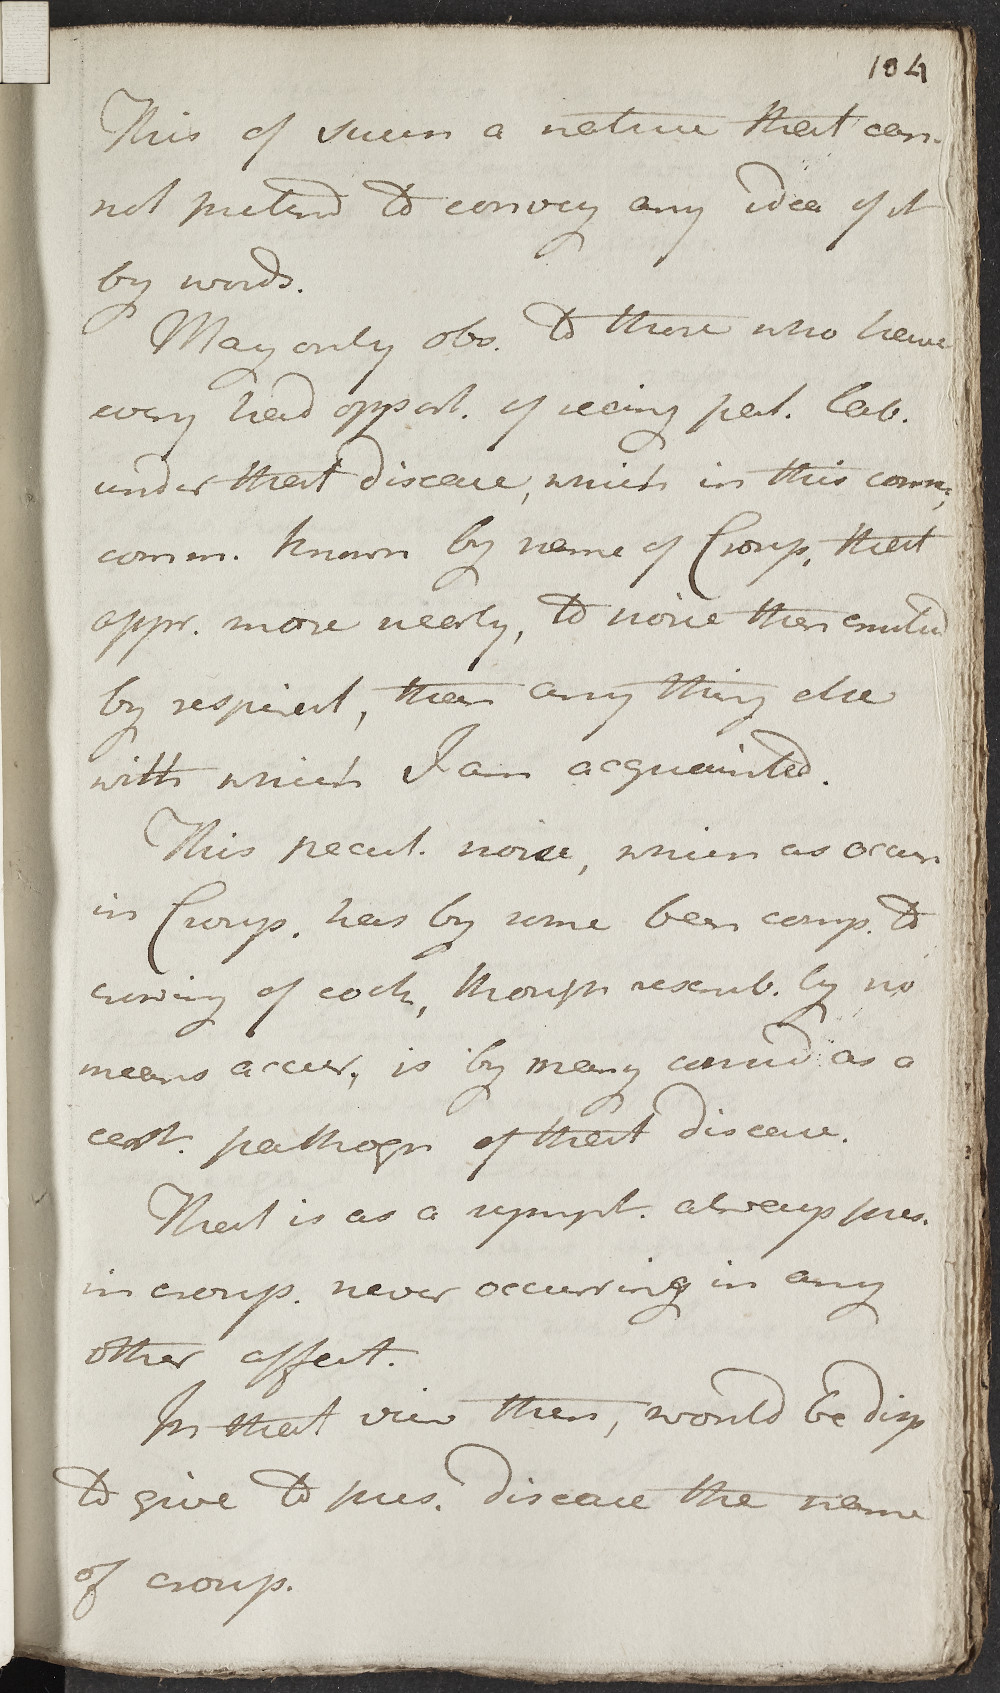 104
This of such a nature that can-
not pretend to convey any idea of it
by words.
May only obs. to those who have
every had opport. of seeing pat. lab.
under that disease, which in this coun,
comm. known by name of Croup, that
appr. more nearly, to noise then emitted
by respirat, than any thing else
with which I am acquainted.
This pecul. noise, which as occurs
in Croup. has by some been comp. to
crowing of cock, though resemb. by no
means accur, is by many consid as a
cert. pathogn of that disease.
That is as a sympt. always pres.
in croup. never occurring in any
other affect.
In that view then, would be disp
to give to pres. disease the name
of croup.